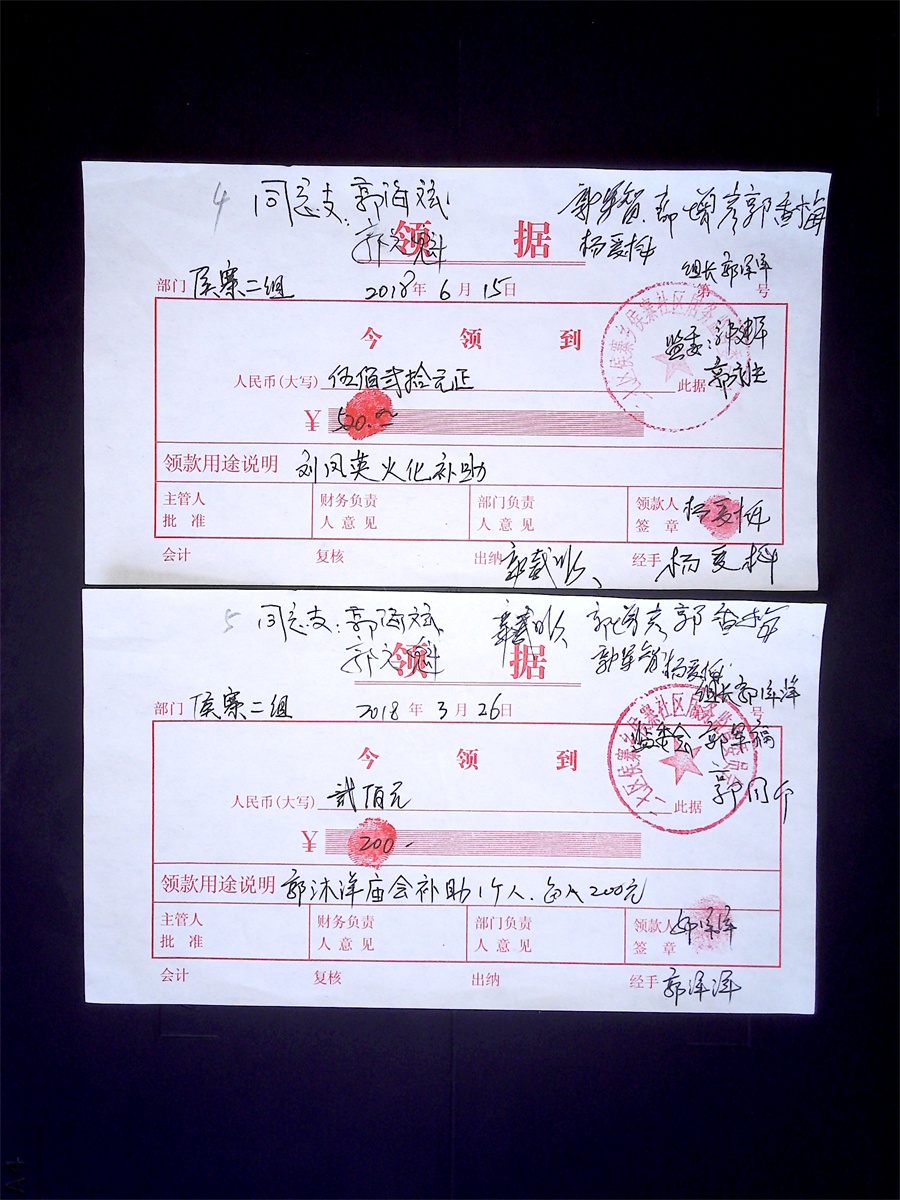 4 同意支:郭海斌 郭军智 郭增彦 郭香梅
郭文魁 杨爱梅
领 据
组长郭洋洋
部门 侯寨二组 2018年6月15日 第 号
今 领 到
监委:郭建军
人民币(大写) 伍佰贰拾元正 此据
¥ 520.00
领款用途说明 刘凤英火化补助
主管人 财务负责 部门负责 领款人
批 准 人意见 人意见 签 章
会计 复核 出纳 经手
5 同意支:郭海斌 郭增彦 郭香梅
郭文魁 郭军智
领 据
组长郭洋洋
部门 侯寨二组 2018年3月26日 号
监委会 郭军福
今 领 到
郭同介
人民币(大写) 贰佰元 此据
¥ 200-
领款用途说明 郭沐洋庙会补助1个人.每人200元
主管人 财务负责 部门负责 领款人 郭洋洋
批 准 人意见 人意见 签 章
会计 复核 出纳 经手 郭洋洋